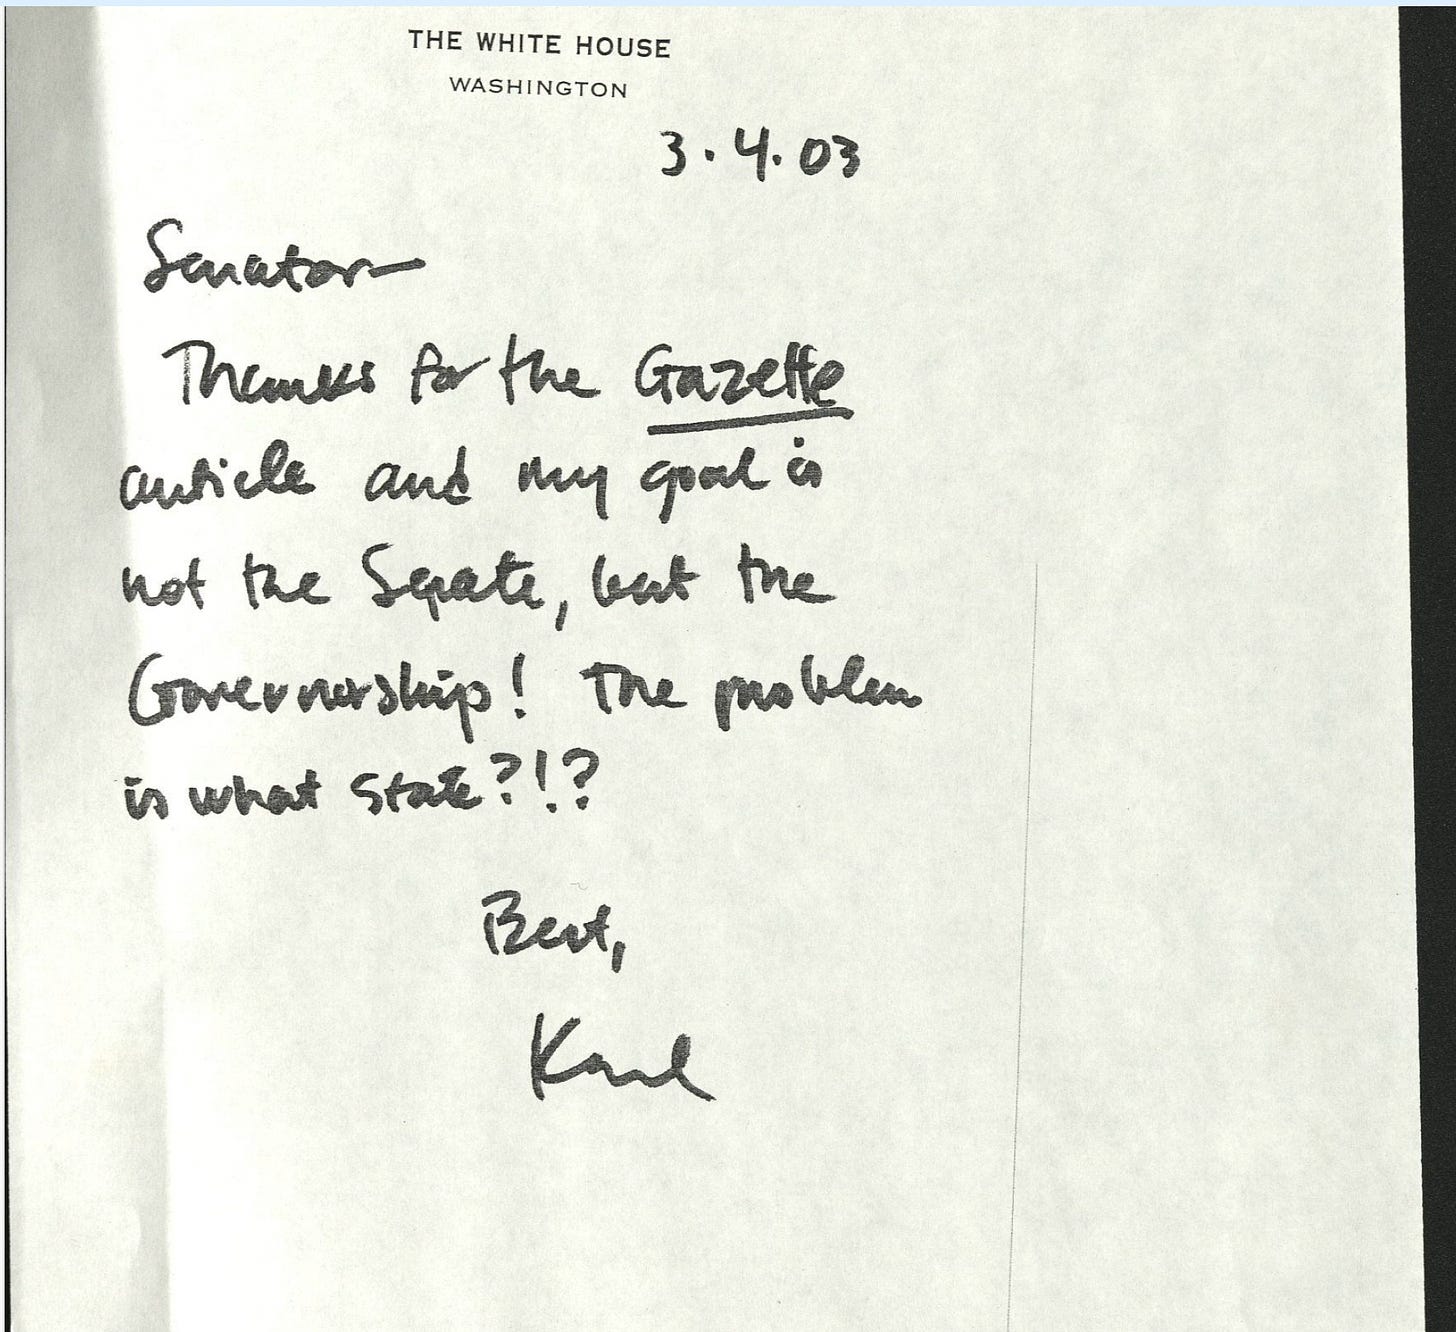 THE WHITE HOUSE
WASHINGTON
3.4.03
Senator—
Thanks for the Gazette
article and my goal is
not the Senate, but the
Governorship! The problem
is what state?!?
Best,
Karl